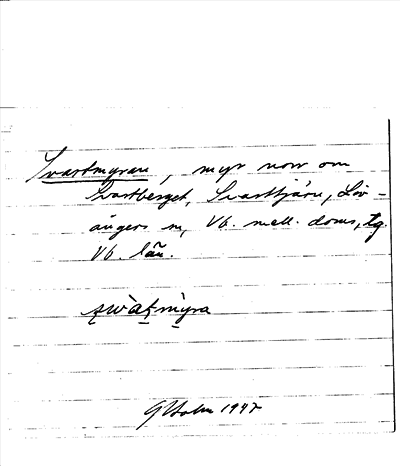 Svartmyran, myr norr om
Svartberget, Svarttjärn, Löv-
ångers sn, Vb. mell. doms, tg.
Vb. län.
swàtmỳra
G Holm 1947